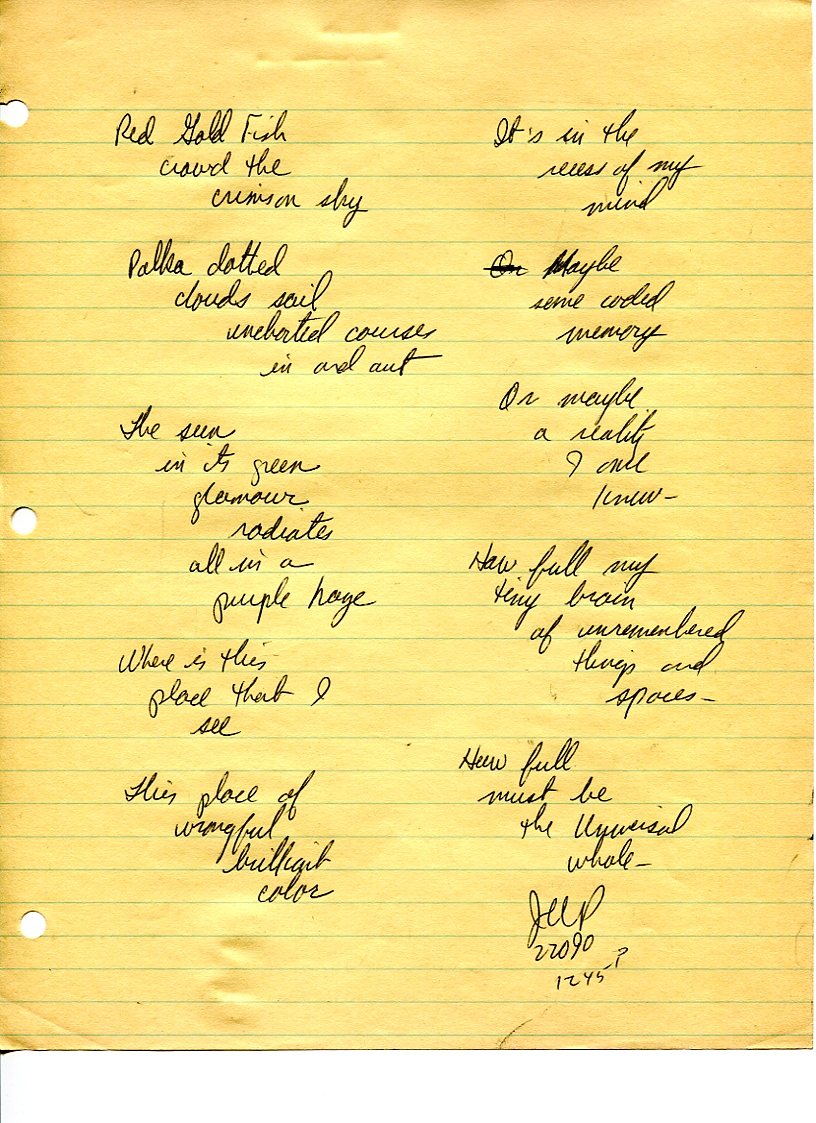 Red Gold Fish
crowd the
crimson sky
Polka dotted
clouds sail
uncharted courses
in and out
The sun
in its green
glamour
radiates
all in a
purple haze
Where is this
place that I
see
This place of
wrongful
brilliant
color
It's in the
recess of my
mind
Or Maybe
some coded
memory
Or maybe
a reality
I once
knew-
How full my
tiny brain
of unremembered
things and
spaces-
How full
must be
the Universal
whole-
22090
1245 P